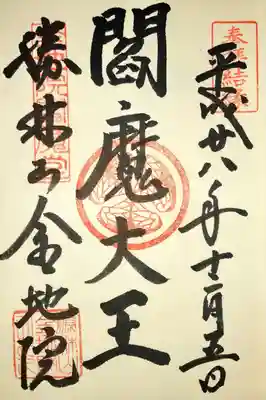 平成廿八年十二月五日
閻魔大王
勝林山金地院